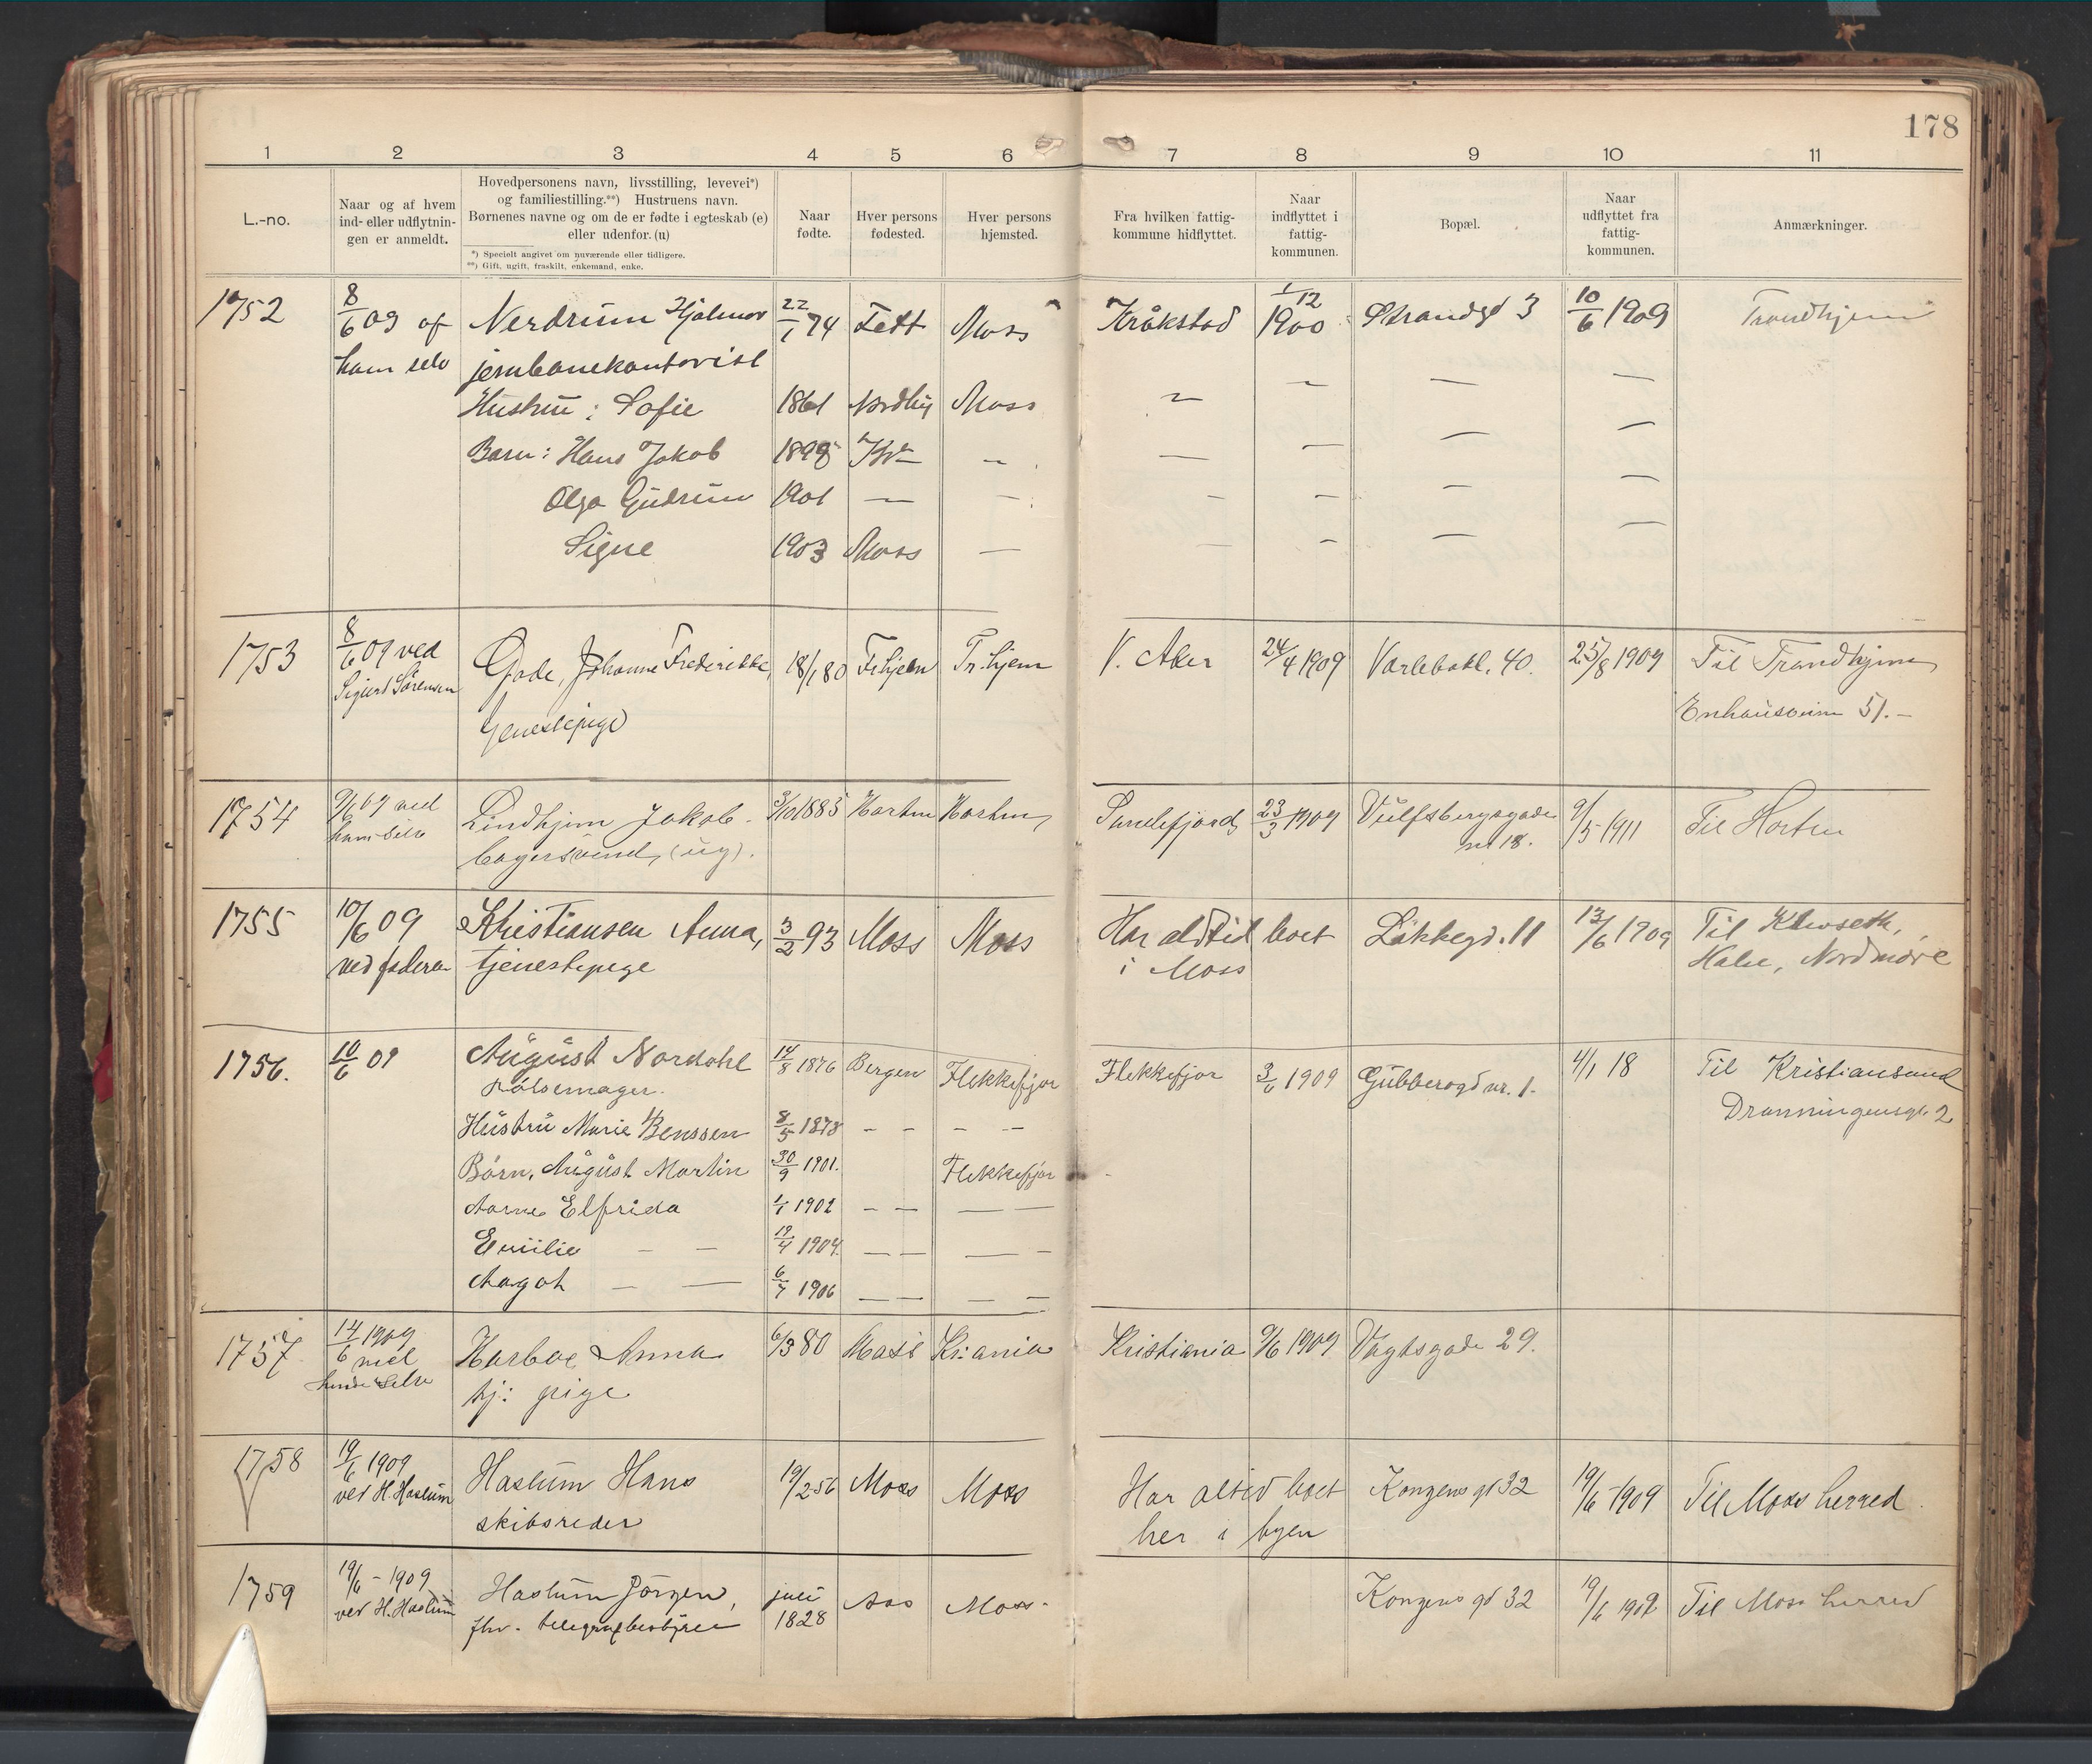 178
1 2 3 4 5 6 7 8 9 10 11
L.-no.
Naar og af hvem
ind- eller udflytnin-
gen er anmeldt.
Hovedpersonens navn, livsstilling, levevei*)
og familiestilling.**) Hustruens navn.
Børnenes navne og om de er fødte i egteskab (e)
eller udenfor. (u)
*) Specielt angivet om nuværende eller tidligere.
**) Gift, ugift, fraskilt, enkemand, enke.
Naar
fødte.
Hver persons
fødested.
Hver persons
hjemsted.
Fra hvilken fattig-
kommune hidflyttet.
Naar
indflyttet i
fattig-
kommunen.
Bopæl.
Naar
udflyttet fra
fattig-
kommunen.
Anmærkninger.
1752 8/6 09 af Nerdrum Hjalmar 22/1 74 Fett Moss Kråkstad 1/12 1900 Strandgd 3 10/6 1909 Trondhjem
ham selv jernbanekontorist
Hustru: Sofie 1861 Nordby Moss — — — —
Barn: Hans Jakob 1898 Kra — — — — —
Olga Gudrun 1901 — — — — — —
Signe 1903 Moss — — — — —
1753 8/6 09 ved Gade, Johanne Frederikke, 18/1 80 Trhjem Tr.hjem V. Aker 24/4 1909 Varlebakk. 40. 25/8 1909 Til Trondhjem
Sigurd Sørensen 51.-
tjenestepige
1754 9/6 09 ved Lindhjem Jakob. 3/10 1885 Horten Horten, Sandefjord, 23/3 1909 Vulfsbergsgade 9/5 1911 Til Horten
ham selv bagersvend, (ug). nr 18.
1755 10/6 09 Kristiansen Anna, 3/2 93 Moss Moss Har altid boet Løkkegd. 11 13/6 1909 Til
ved faderen tjenestepige i Moss Halse, Nordmøre
1756. 10/6 09 August Nordahl 14/8 1876 Bergen Flekkefjor Flekkefjor 3/6 1909 Gubberogd nr. 1. 4/1 18 Til Kristiansund
Pølsemager. Dronningensgt. 2
Hustru Marie Benssen 8/5 1878 — — — —
Børn, August Martin 30/9 1901. Flekkefjor
Aarne Elfrida 1/1 1902 — — — —
Emilie — — 19/4 1904 — — — —
Aagot — — 6/7 1906 — — — —
1757. 14/6 1909 Harboe Anna 6/3 80 Moss Kr:ania Kristiania 9/6 1909 Vogtsgade 29.
ved
hende selv tj: pige
1758 19/6 1909 Haslum Hans 19/2 56 Moss Moss Har altid boet Kongens gd 32 19/6 1909 Til Moss herred.
ved H. Haslum skibsreder her i byen
1759 19/6 - 1909 Haslum Jörgen, juli Aas Moss. Kongens gd 32 19/6 1909 Til Moss herred
ved H. Haslum fhv. telegrafbestyrer 1828